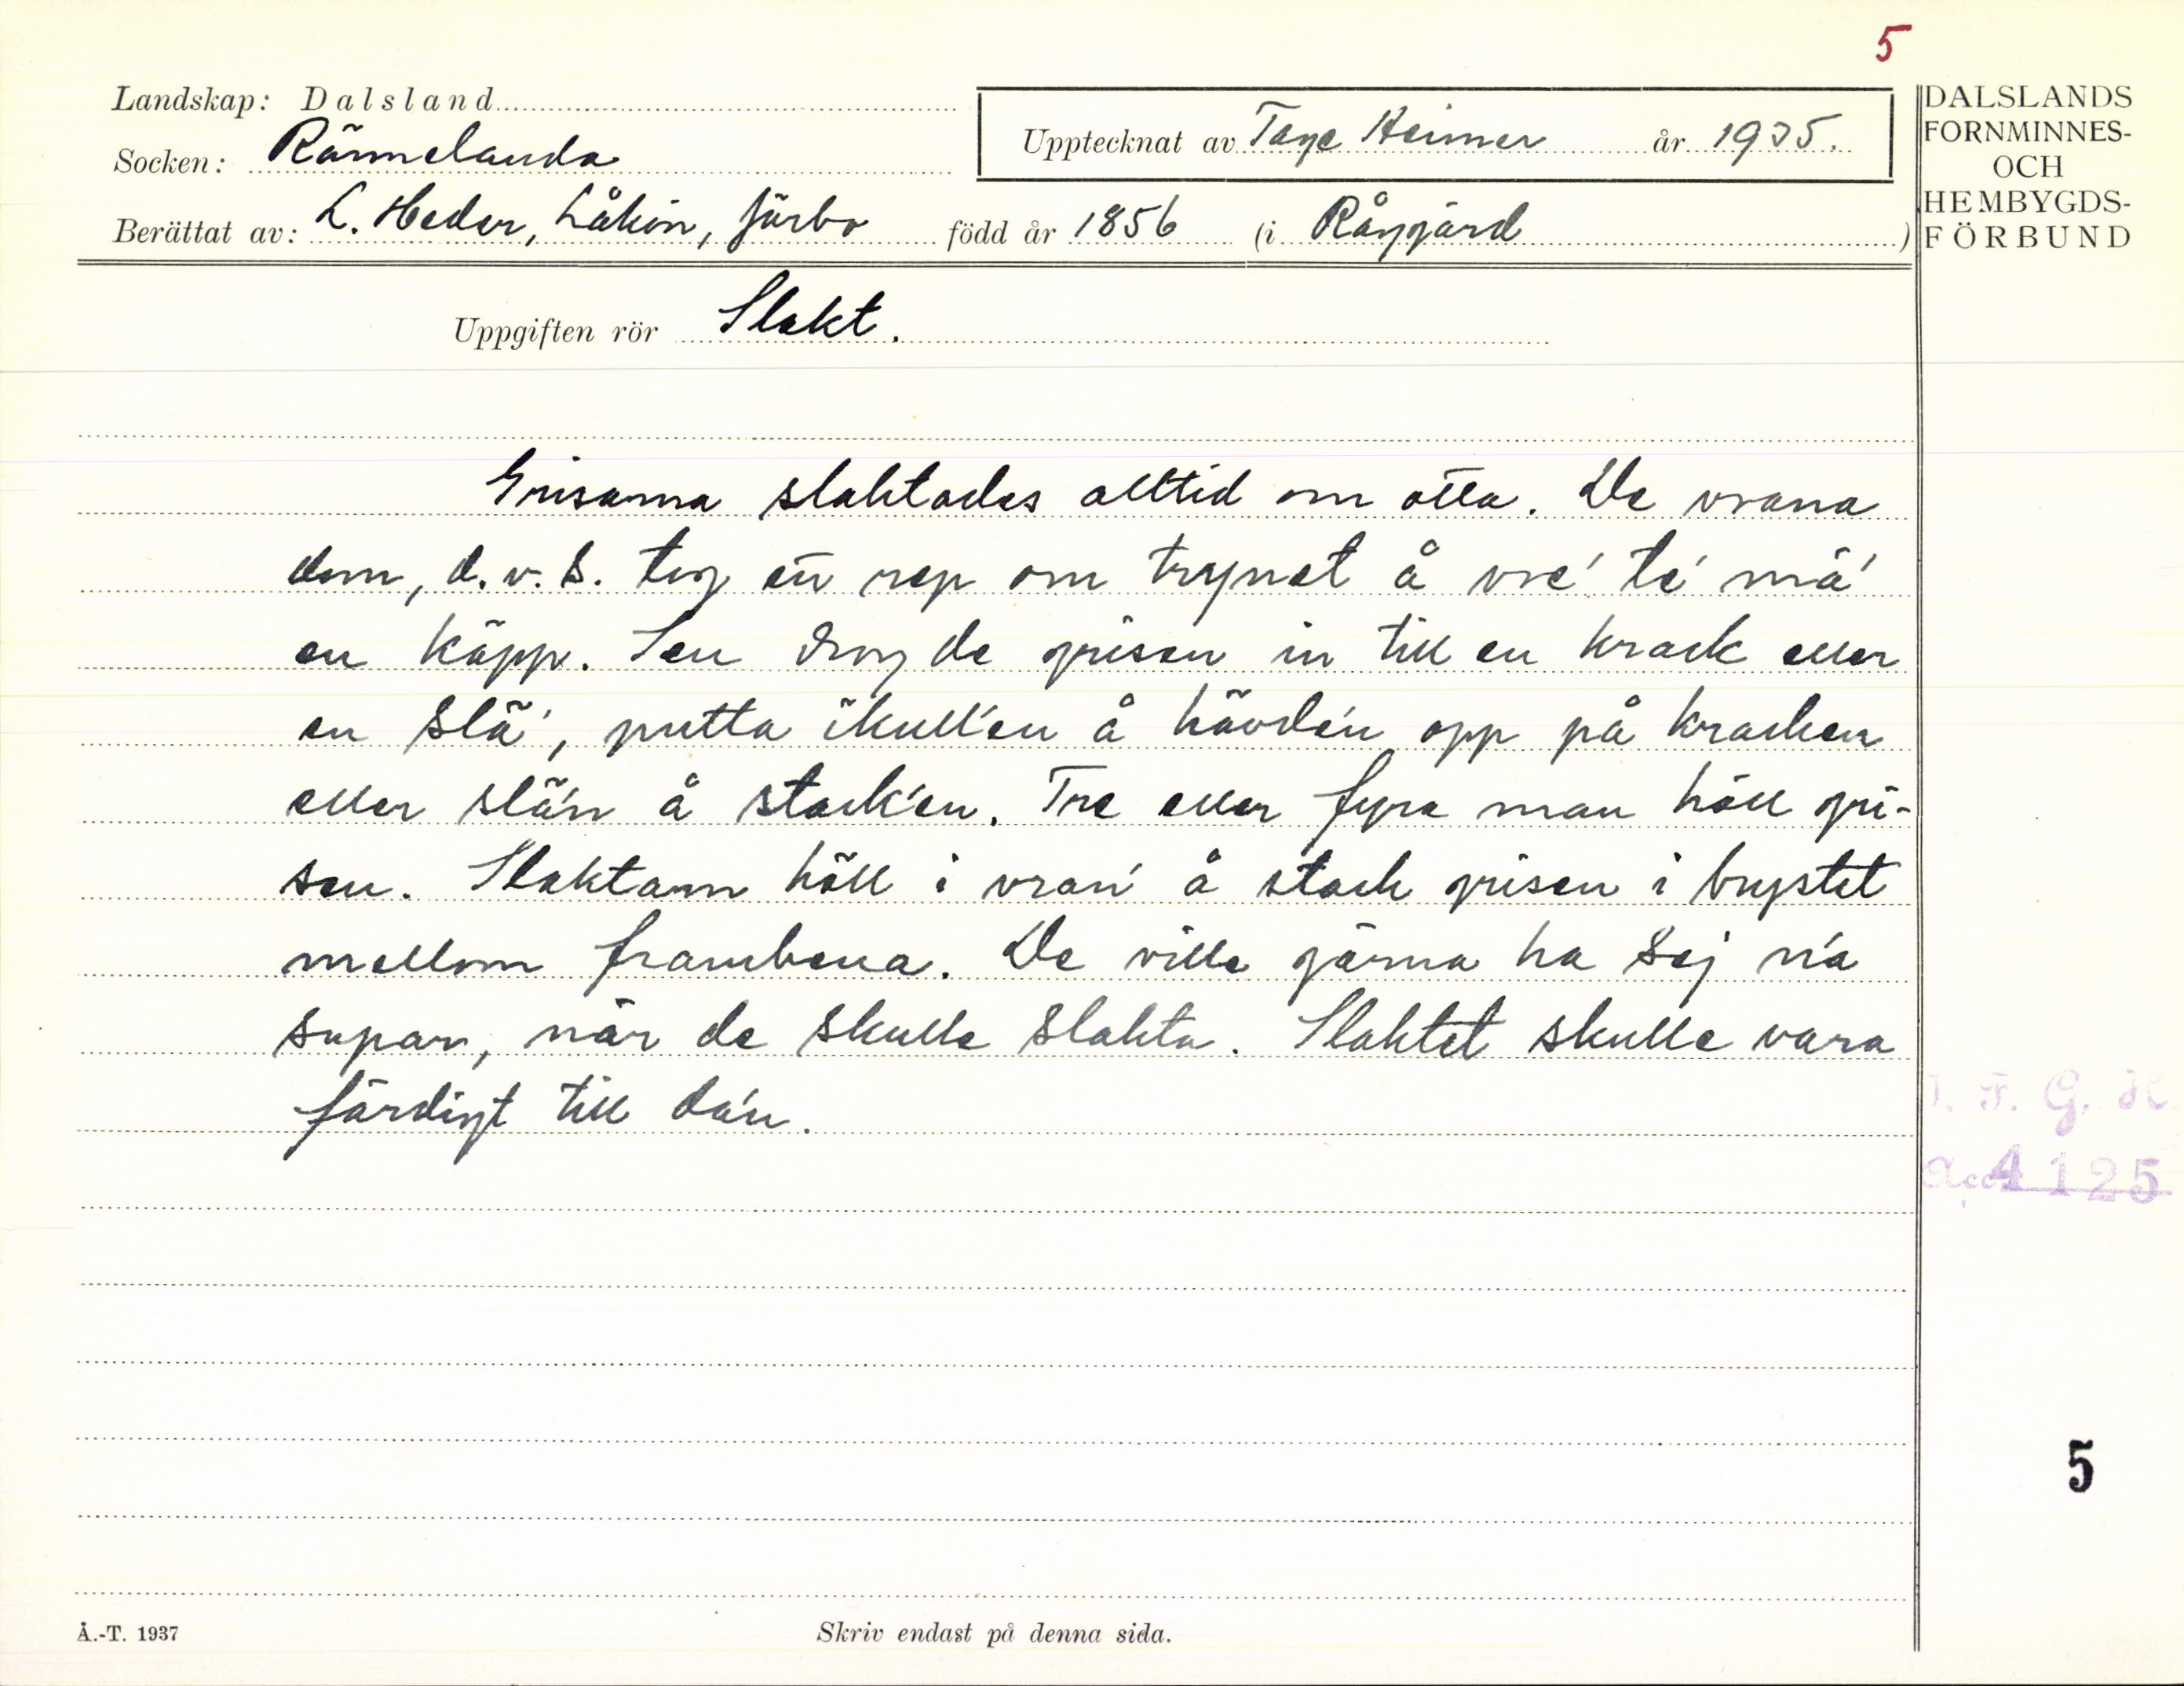 5
Landskap: Dalsland
Socken: Rännelanda
Upptecknat av Tage Heimer år 1935.
Berättat av: L. Heder, Låkin, Järbo född år 1856 (i Råggärd)
DALSLANDS
FORNMINNES-
OCH
HEMBYGDS-
FÖRBUND
Uppgiften rör Slakt.
Grisarna slaktades alltid om otta. De vrana
dem, d.v.s. tog ett rep om trynet å vre' te' mä'
en käpp. Sen drog de grisen in till en krack eller
en slä', putta ikull'en å hävde'n opp på kracken
eller slä'n å stack'en. Tre eller fyra man höll gri-
sen. Slaktarn höll i vran' å stack grisen i brystet
mellom frambena. De ville gärna ha sej n'a
supar, när de skulle slakta. Slaktet skulle vara
färdigt till da'n.
I. F. G. H.
Acc. 4125
5
Å.-T. 1937
Skriv endast på denna sida.